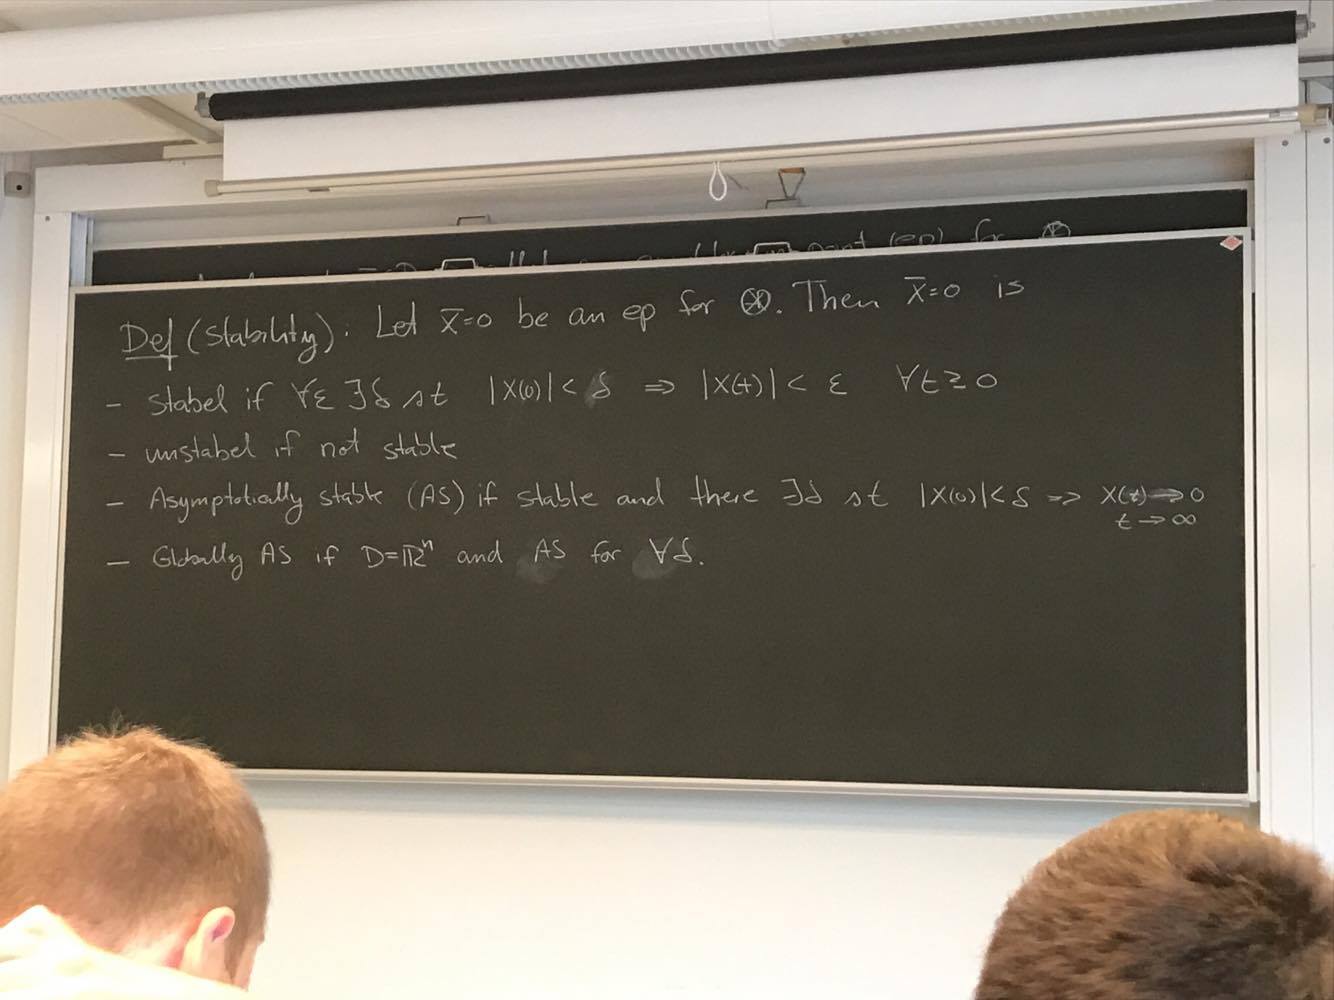 point (ep) for ⊛
Def (Stability). Let x̄=0 be an ep for ⊛. Then x̄=0 is
- stabel if ∀ε ∃δ st |x(0)| < δ ⇒ |x(t)| < ε ∀t ≥ 0
- unstabel if not stable
- Asymptotically stable (AS) if stable and there ∃δ st |x(0)| < δ ⇒ x(t) → 0
t → ∞
- Globally AS if D=ℝⁿ and AS for ∀δ.